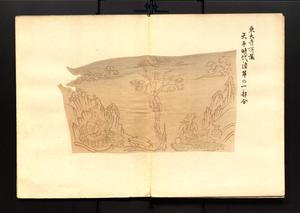 東大寺所蔵
天平時代経箪の一部分